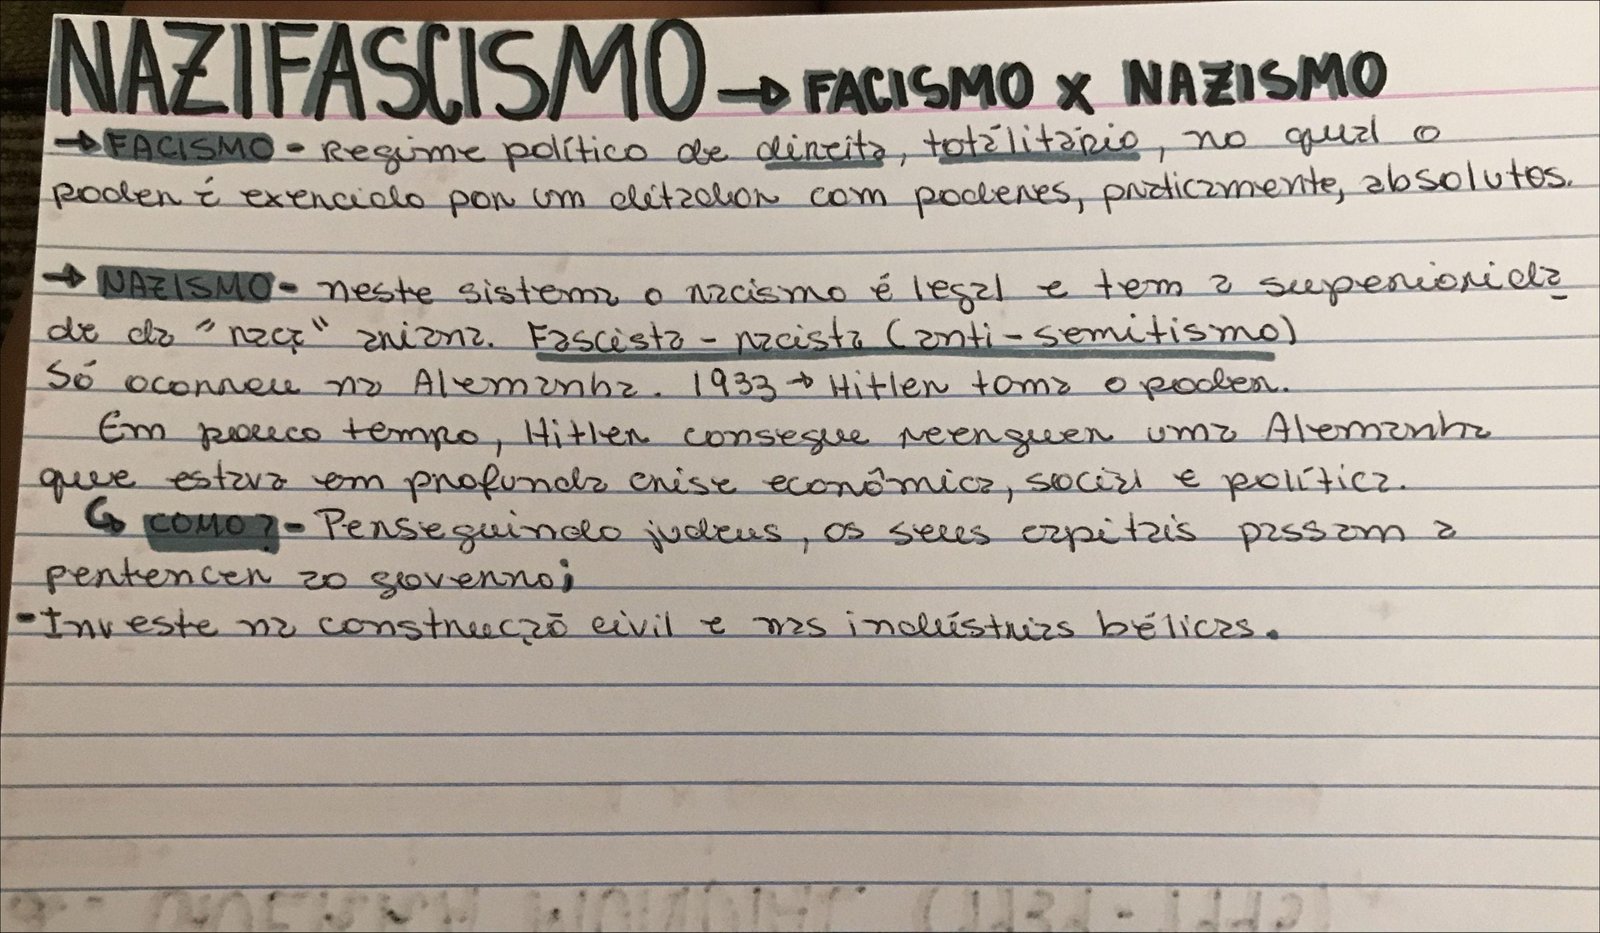 NAZIFASCISMO → FACISMO X NAZISMO
→ FACISMO - Regime político de direita, totálitário, no qual o
poder é exercido por um ditador com poderes, praticamente, absolutos.
→ NAZISMO - neste sistema o racismo é legal e tem a superiorida
de da "raça" ariana. Fascista - racista (anti-semitismo)
Só ocorreu na Alemanha. 1933 → Hitler toma o poder.
Em pouco tempo, Hitler consegue reerguer uma Alemanha
que estava em profunda crise econômica, social e política.
↳ COMO? - Perseguindo judeus, os seus capitais passam a
pertencer ao governo;
- Investe na construção civil e nas indústrias bélicas.